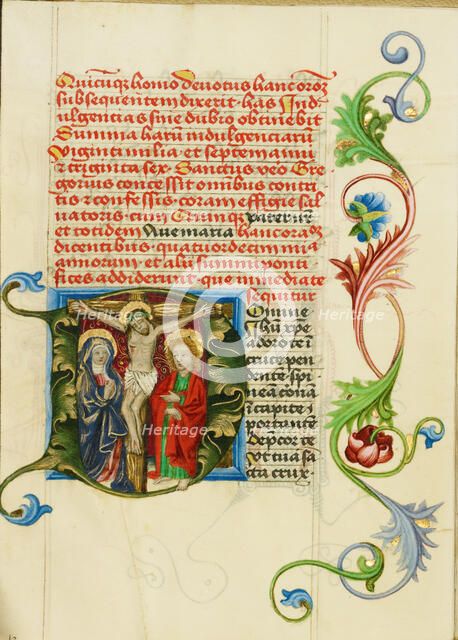 Quicūq; homo devotus hanc oroȝ
subsequentem dixerit has Indu
lgencias sine dubio obtinebit
Summa harū indulgenciarū
viginti milia et septem annū
et triginta sex Sanctus veo Gre
gorius concessit omibus contri
tis ⁊ confessis coram effigie sal
uatoris cum Quinqȝ pater nr̄
et totidem Aue maria hanc oraȝ
dicentibus quatuordecim mīa
annorum et alii summi ponti
fices addiderunt que inmediate
sequitur
Domine
ihū xpe
adoro te ī
cruce pen
dente spi
nea corōa
ī capite
portante
dep̄cor te
vt tua sā
cta crux
Heritage
Heritage
Heritage
Heritage